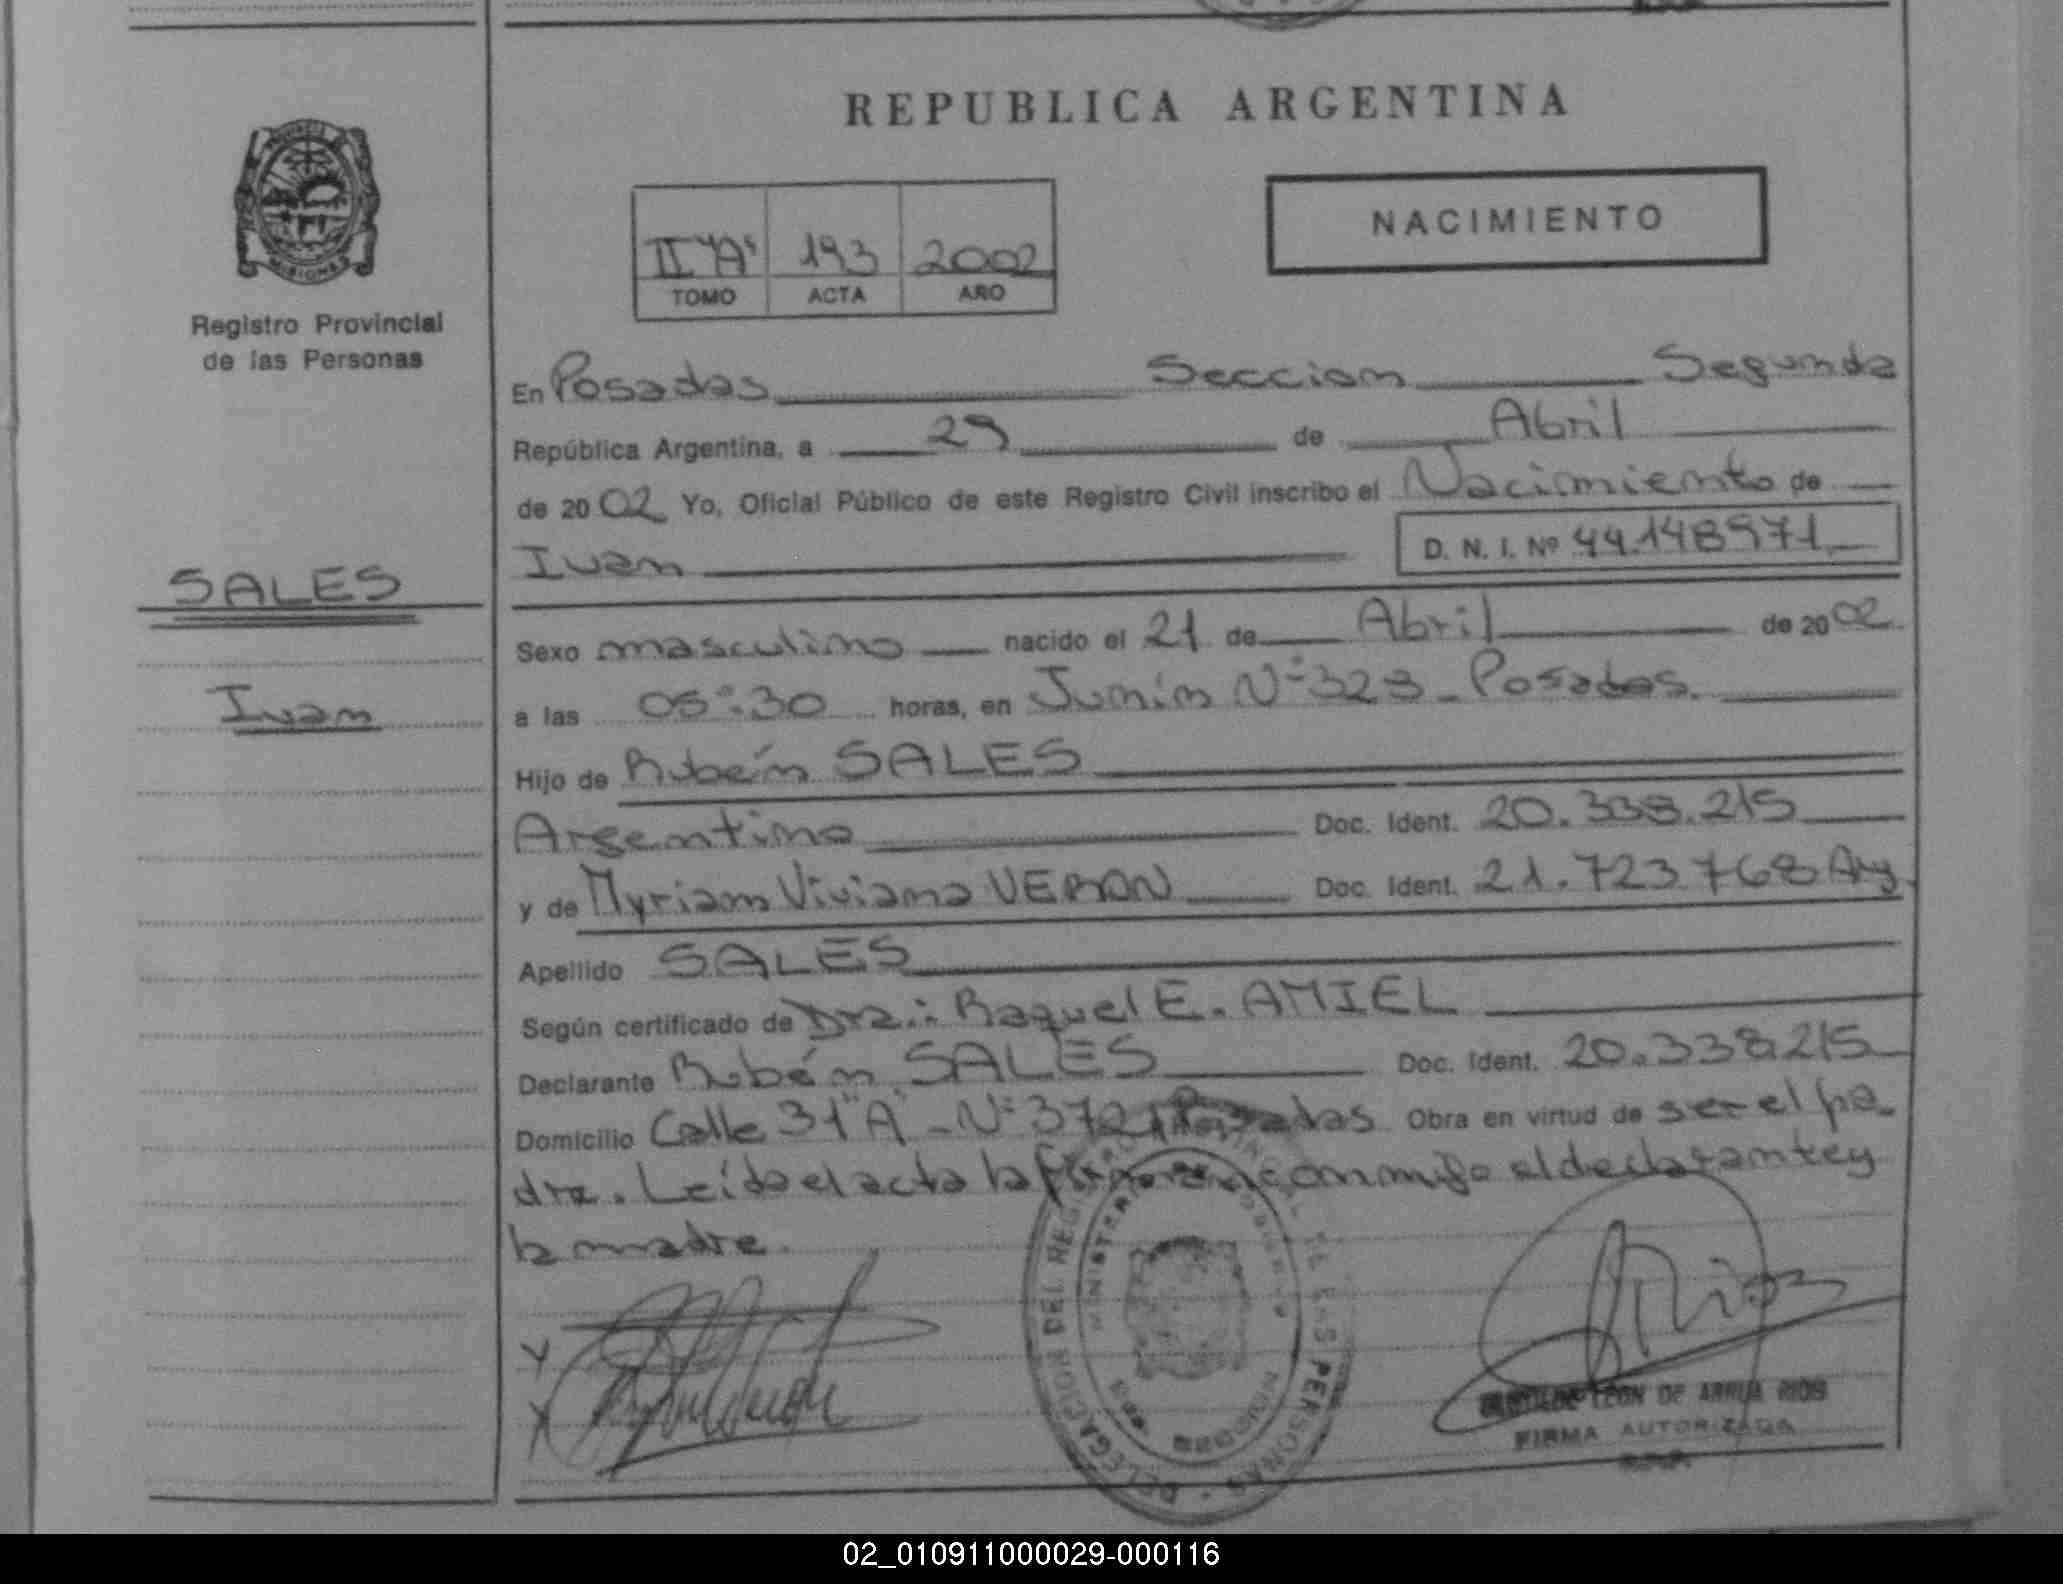 REPUBLICA ARGENTINA
NACIMIENTO
II "A" 193 2002
TOMO ACTA AÑO
MISIONES
Registro Provincial
de las Personas
SALES
Ivan
En Posadas Seccion Segunda
República Argentina, a 29 de Abril
de 2002 Yo, Oficial Público de este Registro Civil inscribo el Nacimiento de
Ivan D. N. I. Nº 44.148971
Sexo masculino nacido el 21 de Abril de 2002
a las 05:30 horas, en Junín Nº 323 - Posadas.
Hijo de Rubén SALES
Argentino Doc. Ident. 20.338.215
y de Myriam Viviana VERON Doc. Ident. 21.723768 Arg.
Apellido SALES
Según certificado de Dra.: Raquel E. AMIEL
Declarante Rubén SALES Doc. Ident. 20.338215
Domicilio Calle 31 "A" - Nº Posadas Obra en virtud de ser el pa-
dre. Leída el acta la firman conmigo el declarante y
la madre.
DELEGACION DEL REGISTRO PROVINCIAL DE LAS PERSONAS
MINISTERIO DE GOBIERNO
MISIONES
LEON DE ARRUA RIOS
FIRMA AUTORIZADA
02_010911000029-000116